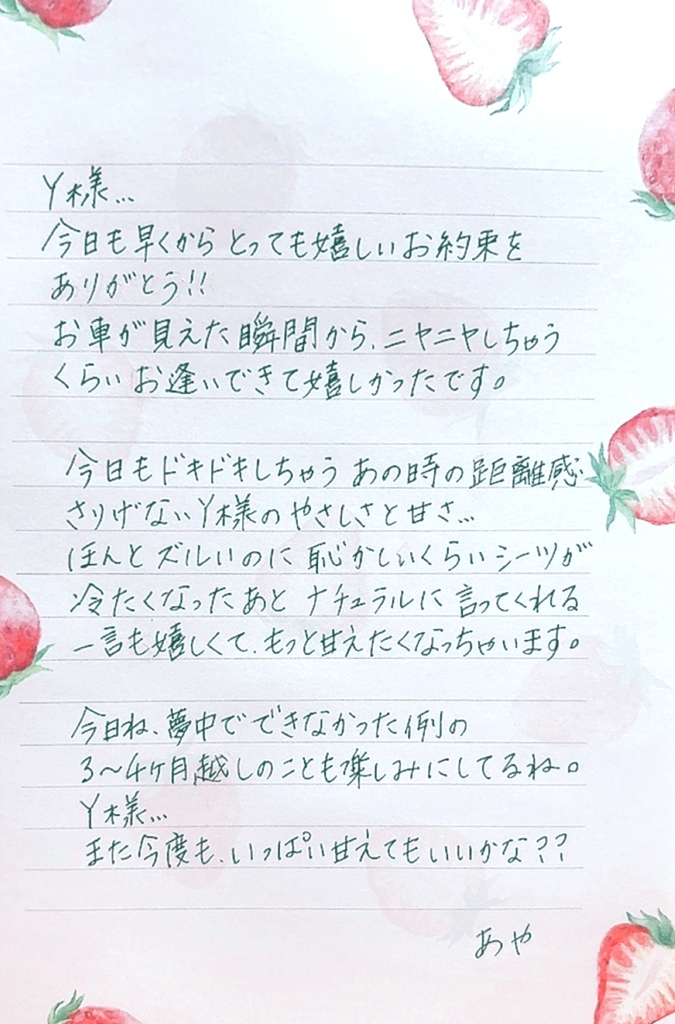 Y様…
今日も早くからとっても嬉しいお約束を
ありがとう!!
お車が見えた瞬間から、ニヤニヤしちゃう
くらいお逢いできて嬉しかったです。
今日もドキドキしちゃうあの時の距離感…
さりげないY様のやさしさと甘さ…
ほんとズルいのに恥かしいくらいシーツが
冷たくなったあとナチュラルに言ってくれる
一言も嬉しくて、もっと甘えたくなっちゃいます。
今日ね、夢中でできなかった例の
3〜4ヶ月越しのことも楽しみにしてるね。
Y様…
また今度も、いっぱい甘えてもいいかな??
あや